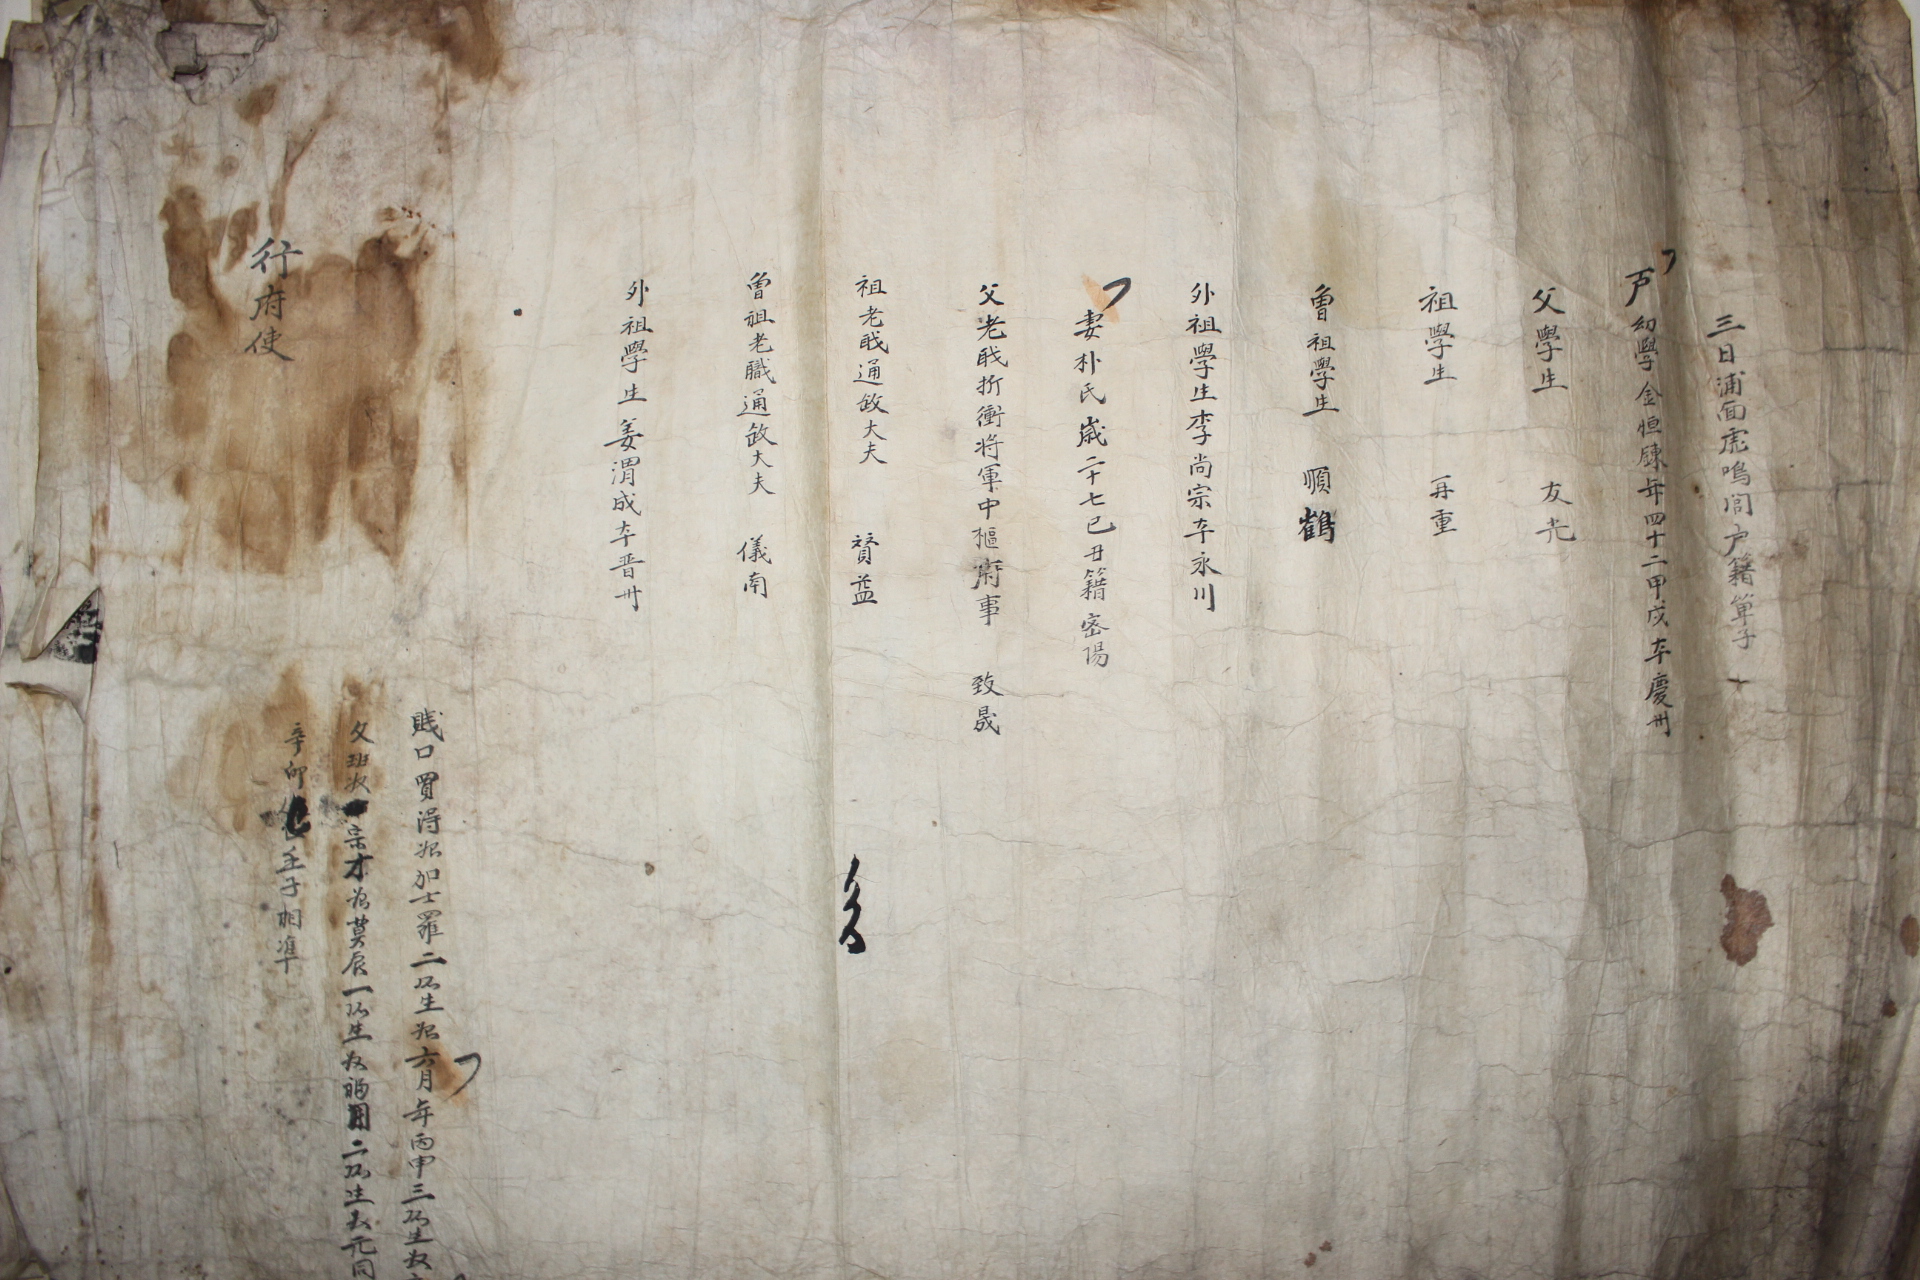 三日浦面虎鳴閭户籍單子
户幼學金恒鍊年四十二甲戌本慶州
父學生 友光
祖學生 再重
曾祖學生 順鶴
外祖學生李尚宗本永川
妻朴氏歲二十七己丑籍密陽
父老職折衝将軍中樞府事 致晟
祖老職通政大夫 贇益
曾祖老職通政大夫 儀南
外祖學生姜渭成本晋州
賎口買得婢加士羅二所生婢六月年丙申三所生奴
父班奴宗才婢莫辰一所生奴福用二所生奴元同
辛卯 壬子相準
行府使